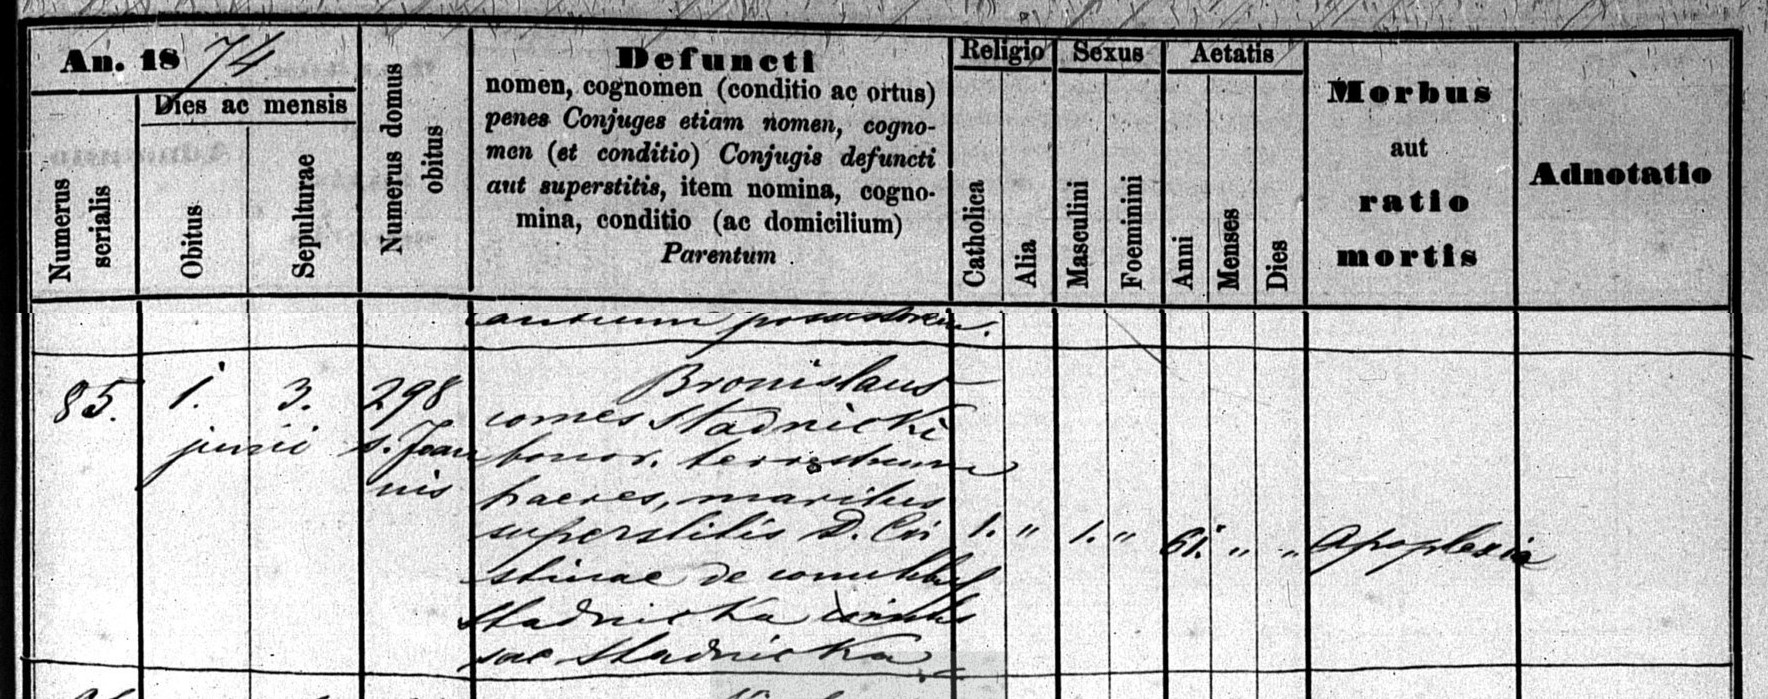 An. 1874
Dies ac mensis
Numerus serialis
Obitus
Sepulturae
Numerus domus obitus
Defuncti
nomen, cognomen (conditio ac ortus)
penes Conjuges etiam nomen, cogno-
men (et conditio) Conjugis defuncti
aut superstitis, item nomina, cogno-
mina, conditio (ac domicilium)
Parentum
Religio
Catholica
Alia
Sexus
Masculini
Foeminini
Aetatis
Anni
Menses
Dies
Morbus
aut
ratio
mortis
Adnotatio
85.
1.
junii
3.
298
s. Joan
nis
Bronislaus
comes Stadnicki
honor. terrestrium
haeres, maritus
superstitis D.
stinae de comitibus
Stadnicka
sae Stadnicka
1. " 1. " 61. " " Apoplexia